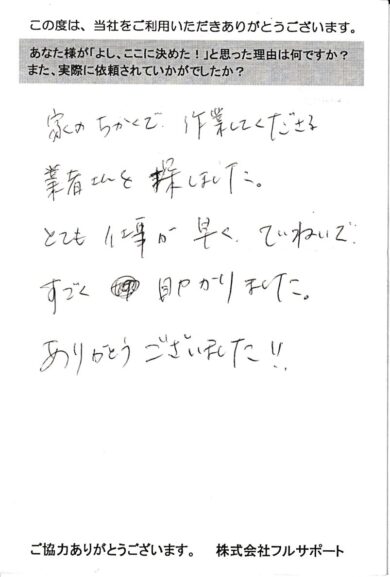 この度は、当社をご利用いただきありがとうございます。
あなた様が「よし、ここに決めた！」と思った理由は何ですか？
また、実際に依頼されていかがでしたか？
家のちかくで、作業してくださる
業者さんを探しました。
とても仕事が早く、ていねいで
すごく助かりました。
ありがとうございました!!
ご協力ありがとうございます。 株式会社フルサポート